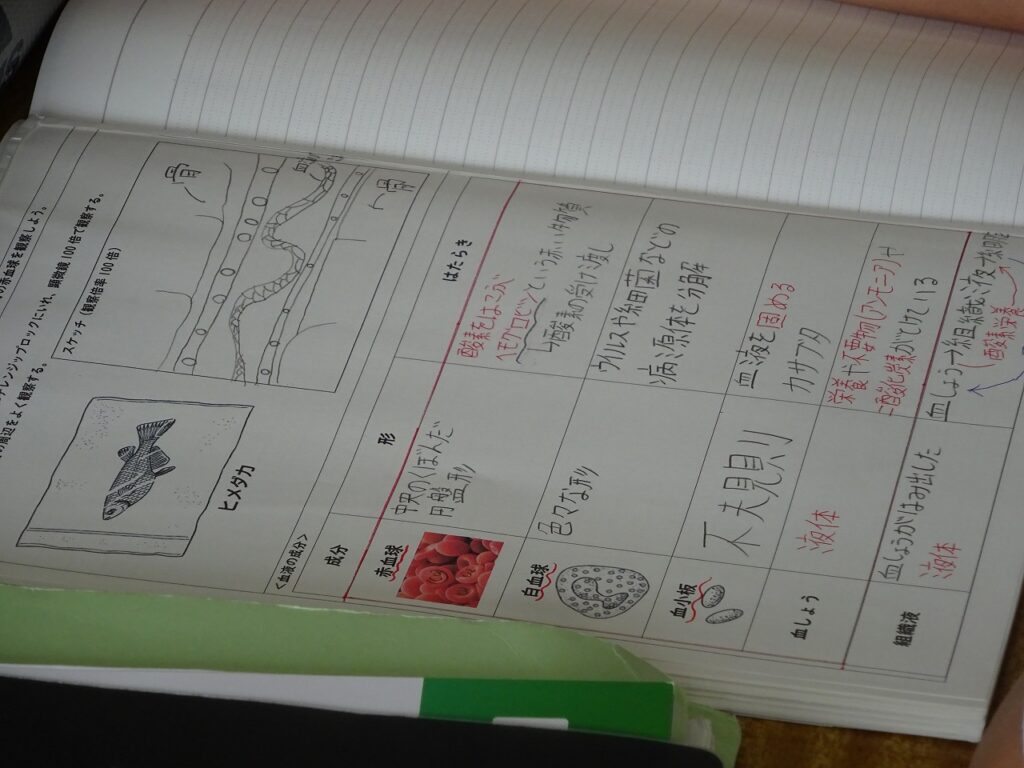 の赤血球を観察しよう。
レンジップロック)にいれ、顕微鏡100倍で観察する。
の周辺をよく観察する。
スケッチ（観察倍率 100 倍）
骨
骨
ヒメダカ
<血液の成分>
成分 形 はたらき
赤血球
中央のくぼんだ
円盤形
酸素をはこぶ
ヘモグロビンという赤い物質
→酸素の受け渡し
白血球
色々な形
ウイルスや細菌などの
病原体を分解
血小板
不規則
血液を固める
カサブタ
血しょう
液体
栄養や不要物(アンモニア)や
二酸化炭素がとけている
組織液
血しょうがはみ出した
液体
血しょう→組織液→
(酸素栄養